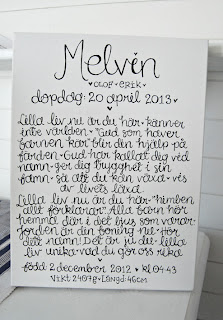 Melvin
OLOF • ERIK
dopdag: 20 april 2013 •
Lilla liv nu är du här • känner
inte världen • Gud som haver
barnen kär blir din hjälp på
färden • Gud har kallat dig vid
namn • ger dig trygghet i sin
famn • så att du kan växa • vis
av livets läxa
Lilla liv nu är du här • himlen
allt förklarar • Alla barn hör
hemma där i det ljus som varar •
Jorden är din boning nu • Hör
ditt namn! Det är ju du • lilla
liv unika • vad du gör oss rika
född 2 december 2012 • kl 04.43
Vikt 2407g • Längd: 46cm